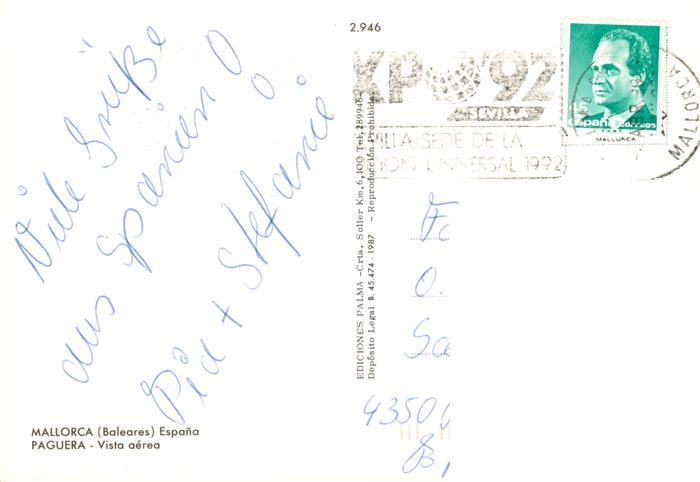 Viele Grüße
aus Spanien
Pia + Stefanie
MALLORCA (Baleares) España
PAGUERA - Vista aérea
2.946
EDICIONES PALMA -Crta. Soller Km, 6,100 Tel, 289948-
Depósito Legal B. 45.474 - 1987 - Reproducción Prohibida
XPO '92
SEVILLA
SEVILLA SEDE DE LA
UNIVERSAL 1992
15
España correos
MALLORCA
MALLORCA
4350